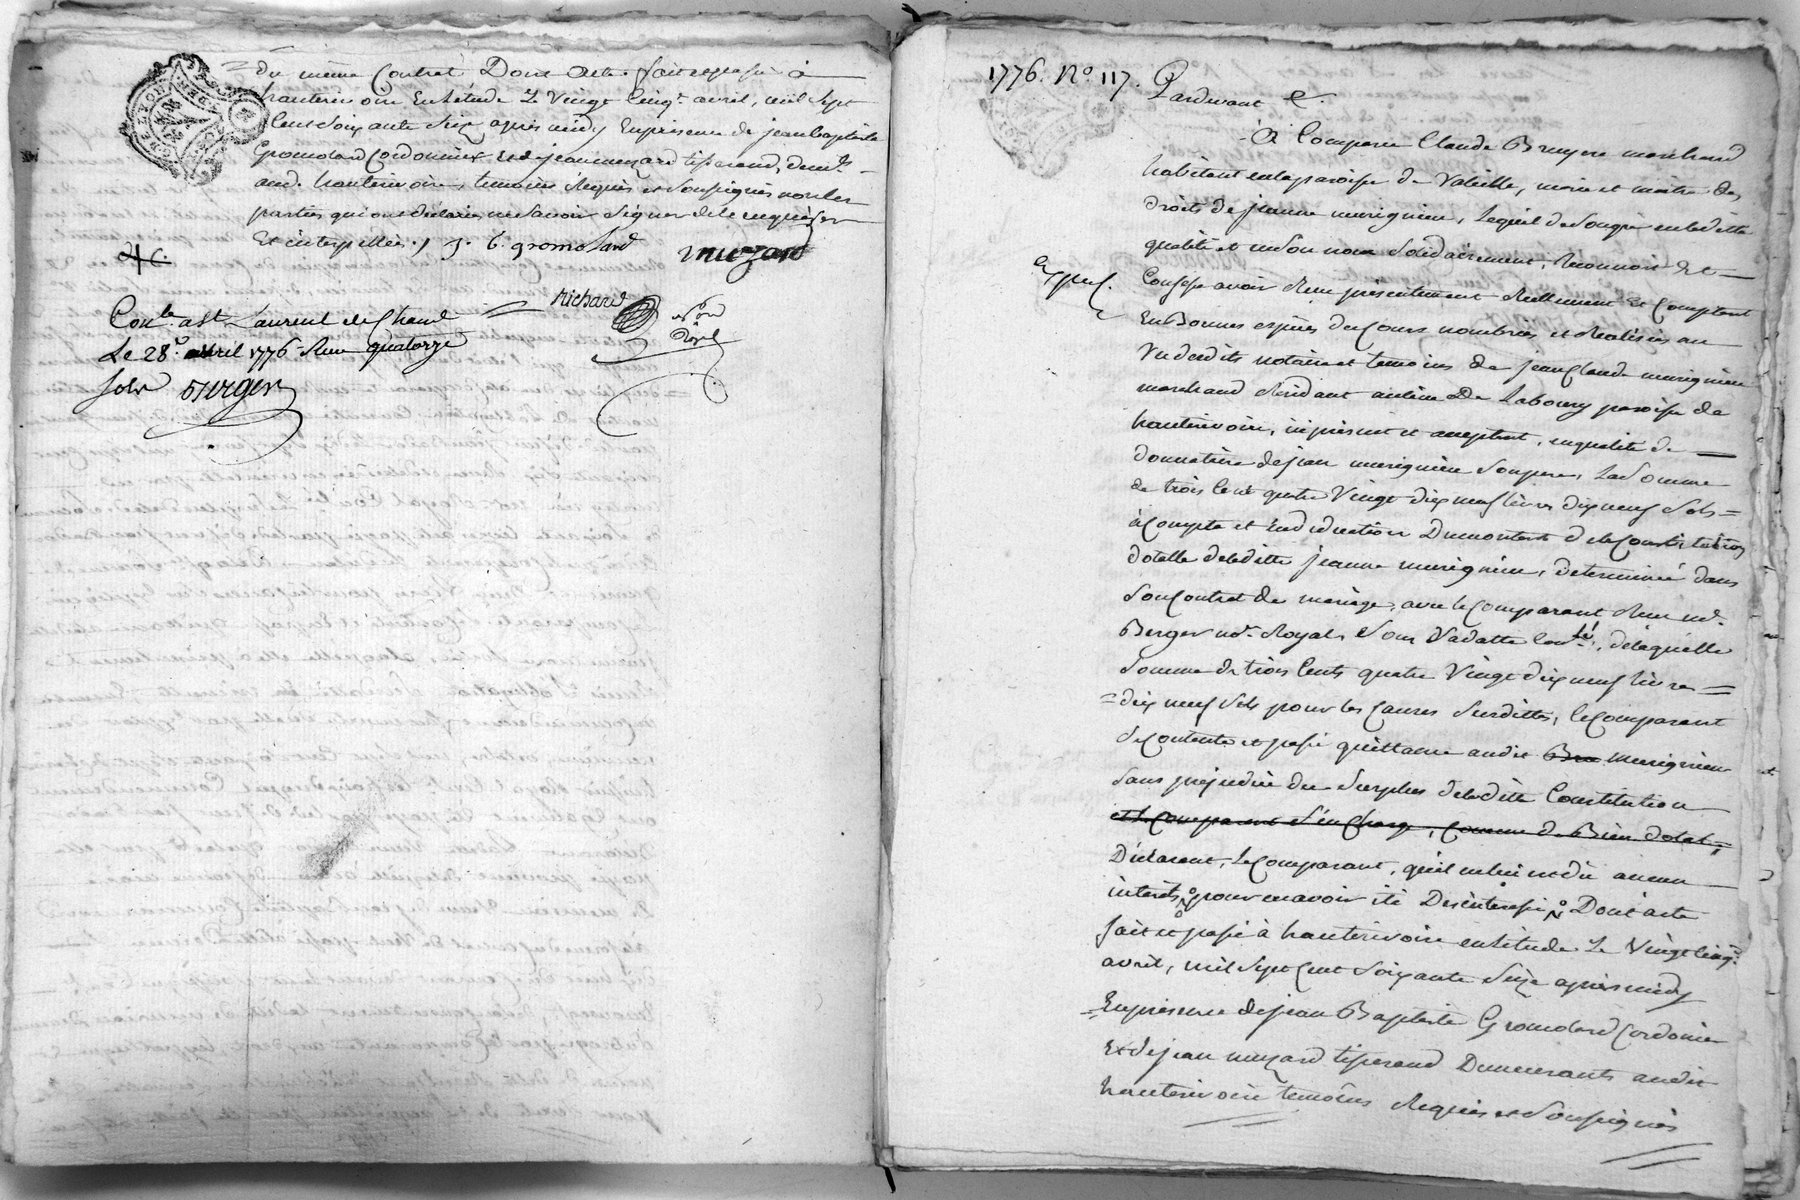 du même Contrat Dont acte fait et passé à
hauterivoire En l'étude Le Vingt Cinq.e avril, mil sept
Cent soixante Seize après midy En présence de jean baptiste
Gromolard Cordonnier et de jean muzard tisserand, dem.ts
aud. hauterivoire, temoins Requis et soussignés non les
parties qui ont déclaré ne savoir signer de ce enquises
Et interpellées. J. B. gromolard muzard
Richard
no.re
Royal
Con.lé a St Laurent de Cham.t
Le 28.e avril 1776 Reçu quatorze
sols Berger
1776. No. 117. Pardevant &.
A Comparu Claude Bruyere marchand
habitant en la paroisse de Valeille, mari et maitre des
droits de jeanne murignieu, Lequel de Son gré en laditte
qualité et en son nom Solidairement, Reconnoit Et
Confesse avoir Reçu présentement Réellement Et Comptant
En Bonnes espèces du Cours nombrées et Réalisées au
Vu desdits notaire et temoins de jean Claude murignieu
marchand Résidant au lieu De Laboury paroisse de
hauterivoire, ici présent et acceptant, en qualité de
donnataire de jean murignieu Son pere, La Somme
de trois Cent quatre Vingt dix neuf livres dix neuf Sols
à Compte et En déduction Du montant de la Constitution
dotalle de laditte jeanne murignieu, déterminée dans
Son Contrat de mariage, avec le Comparant Reçu m.e
Berger no.re Royal, Sous Sa datte Con.lé, de laquelle
Somme de trois Cents quatre Vingt dix neuf livres
dix neuf Sols pour les Causes Susdittes, le Comparant
Se Contente et passe quittance audit Bru murignieu
Sans préjudice du Surplus de laditte Constitution
et le Comparant S'en Charge, Comme de Bien dotal,
Déclarant, Le Comparant, qu'il ne lui est dû aucun
intérêts pour en avoir été Désintéressé Dont acte
fait et passé à hauterivoire en l'étude Le Vingt Cinq.e
avril, mil Sept Cent Soixante Seize après midy
En présence de jean Baptiste Gromolard Cordonier
Et de jean muzard tisserand Demeurants audit
hauterivoire temoins Requis et Soussignés